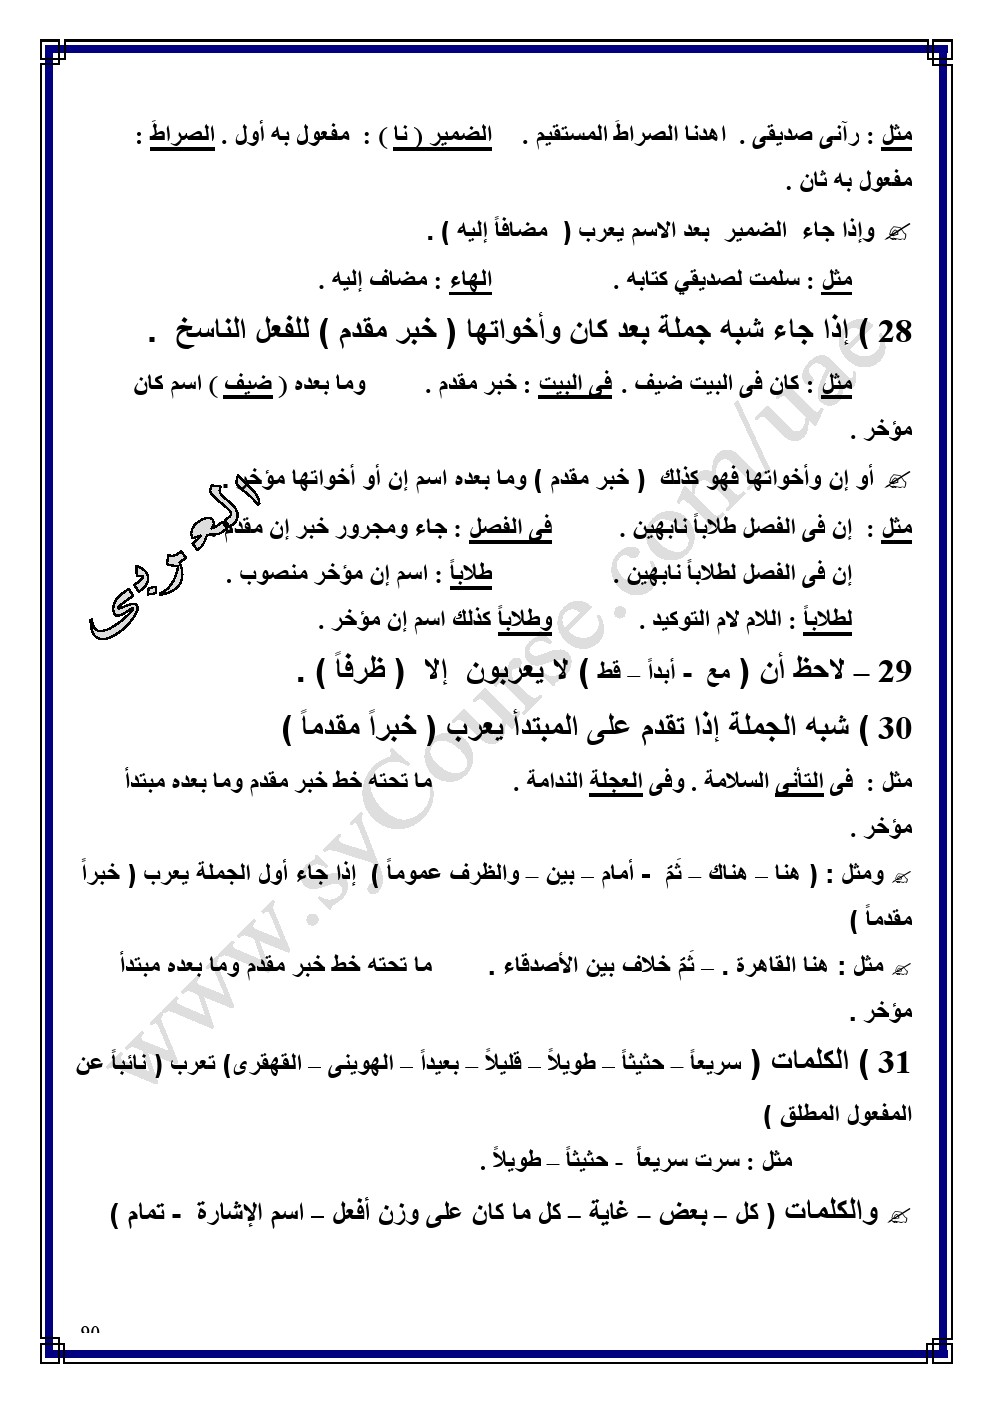 مثل : رآنى صديقى . اهدنا الصراطَ المستقيم . الضمير ( نا ) : مفعول به أول . الصراطَ :
مفعول به ثان .
وإذا جاء الضمير بعد الاسم يعرب ( مضافاً إليه ) .
مثل : سلمت لصديقي كتابه . الهاء : مضاف إليه .
28 ) إذا جاء شبه جملة بعد كان وأخواتها ( خبر مقدم ) للفعل الناسخ .
مثل : كان فى البيت ضيف . فى البيت : خبر مقدم . وما بعده ( ضيف ) اسم كان
مؤخر .
أو إن وأخواتها فهو كذلك ( خبر مقدم ) وما بعده اسم إن أو أخواتها مؤخر .
مثل : إن فى الفصل طلاباً نابهين . فى الفصل : جاء ومجرور خبر إن مقدم
إن فى الفصل لطلاباً نابهين . طلاباً : اسم إن مؤخر منصوب .
لطلاباً : اللام لام التوكيد . وطلاباً كذلك اسم إن مؤخر .
29 – لاحظ أن ( مع - أبداً – قط ) لا يعربون إلا ( ظرفاً ) .
30 ) شبه الجملة إذا تقدم على المبتدأ يعرب ( خبراً مقدماً )
مثل : فى التأنى السلامة . وفى العجلة الندامة . ما تحته خط خبر مقدم وما بعده مبتدأ
مؤخر .
ومثل : ( هنا – هناك – ثَمّ - أمام – بين – والظرف عموماً ) إذا جاء أول الجملة يعرب ( خبراً
مقدماً )
مثل : هنا القاهرة . – ثَمّ خلاف بين الأصدقاء . ما تحته خط خبر مقدم وما بعده مبتدأ
مؤخر .
31 ) الكلمات ( سريعاً – حثيثاً – طويلاً – قليلاً – بعيداً – الهوينى – القهقرى) تعرب ( نائباً عن
المفعول المطلق )
مثل : سرت سريعاً - حثيثاً – طويلاً .
والكلمات ( كل – بعض – غاية – كل ما كان على وزن أفعل – اسم الإشارة - تمام )
العربى
www.syCourse.com/uae
90